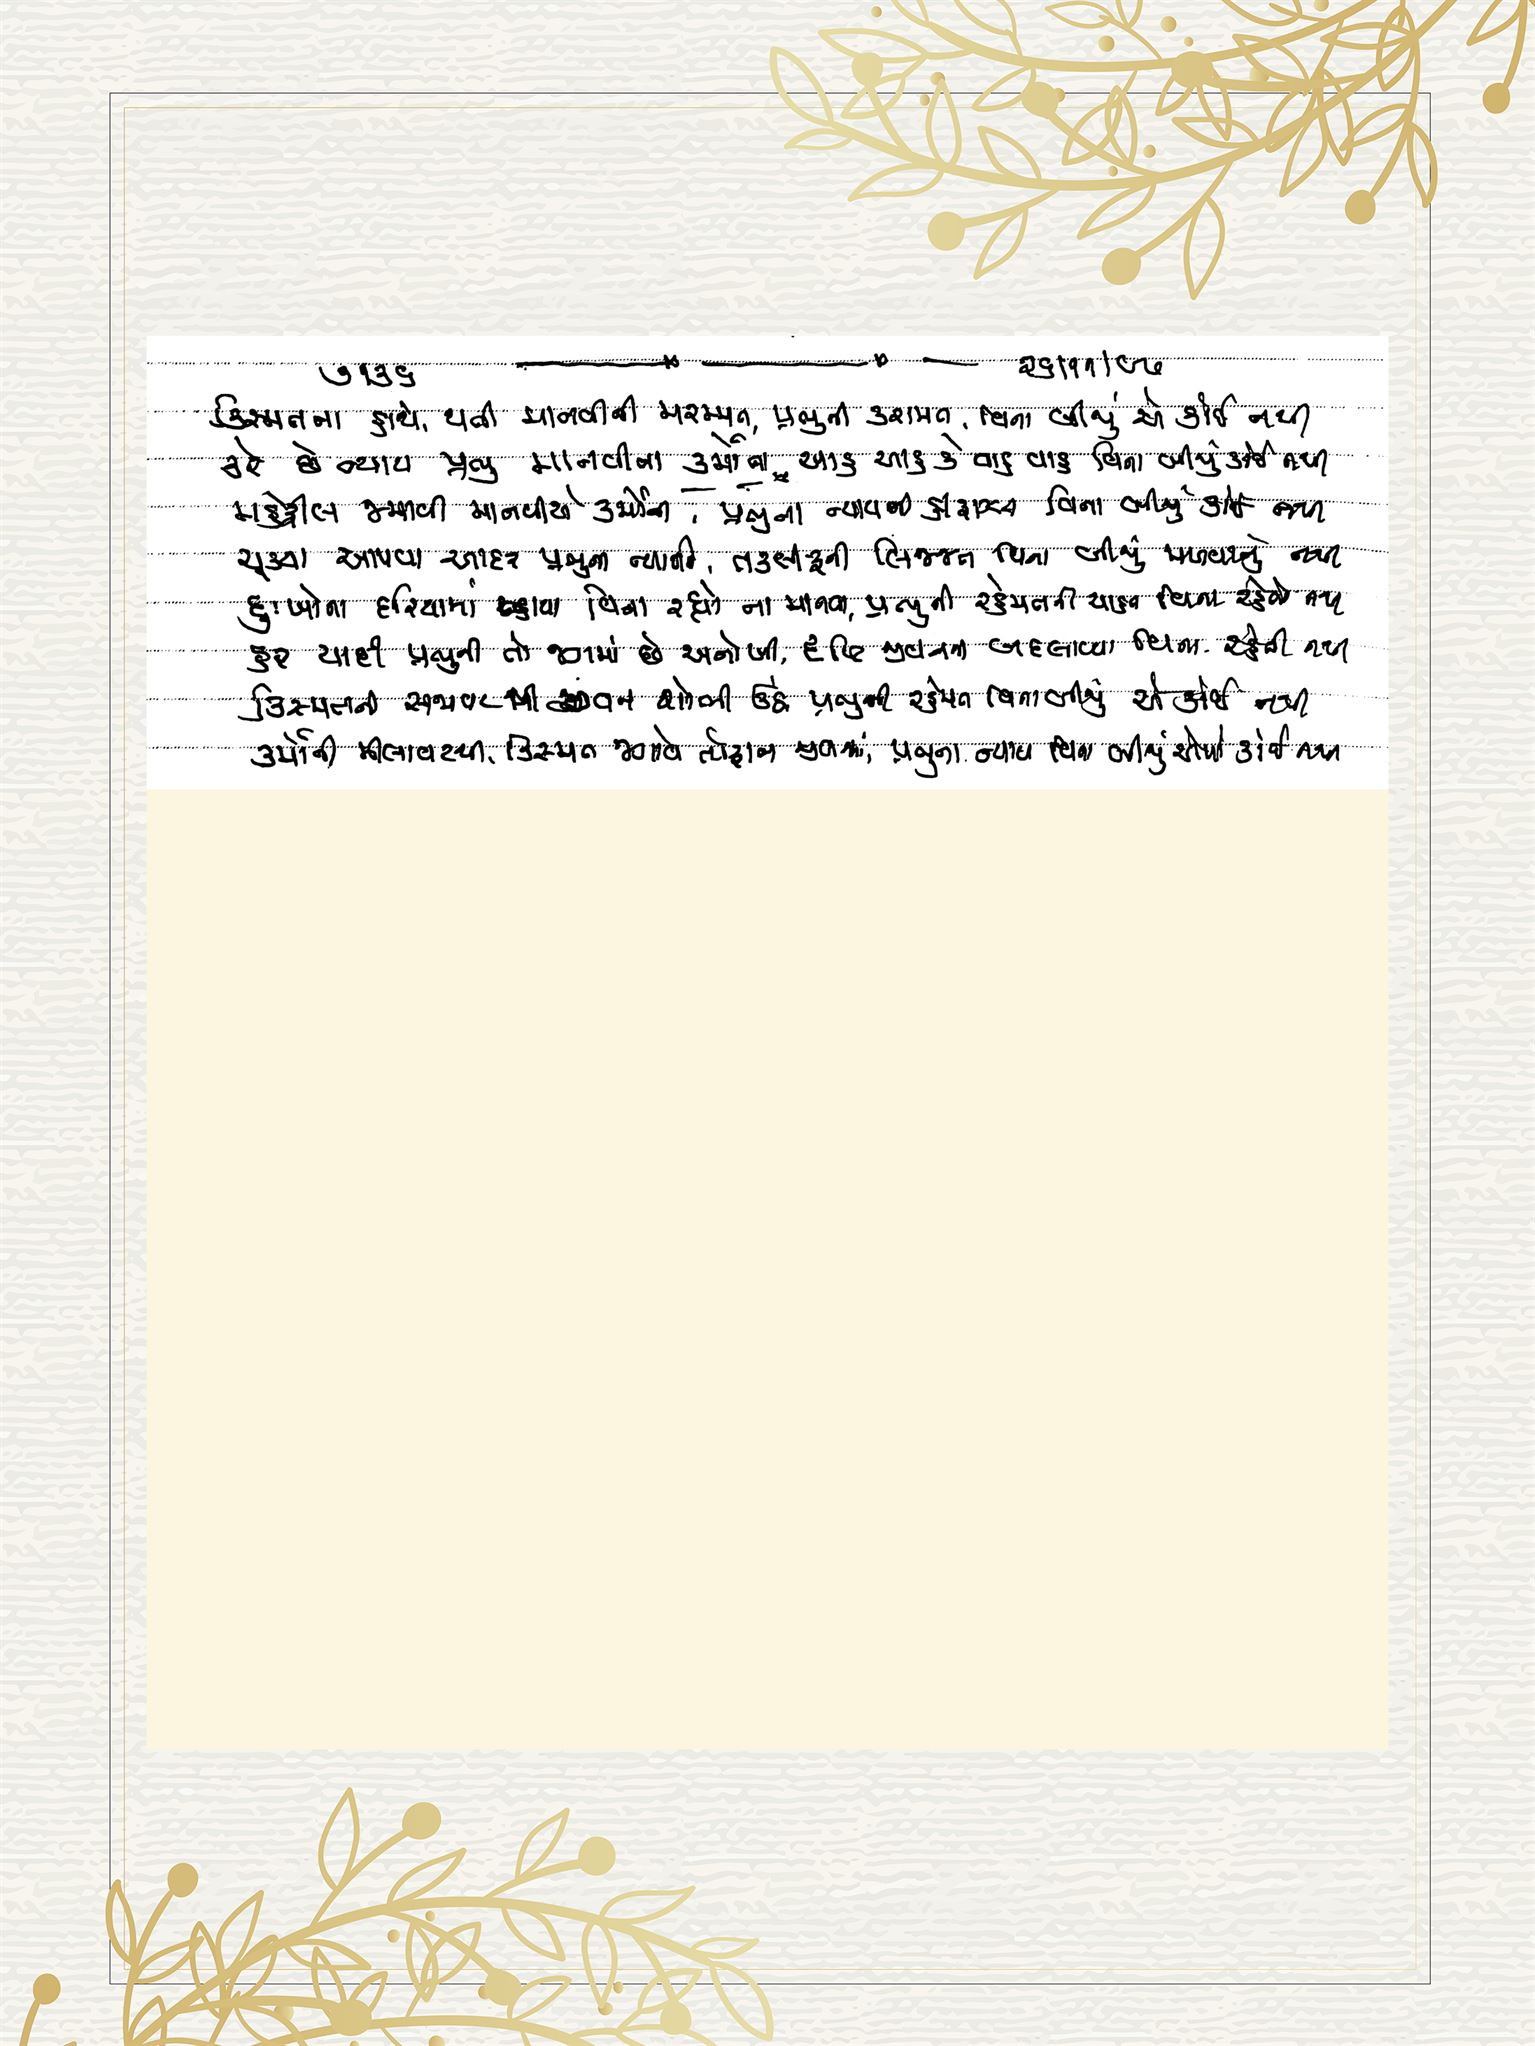 ૭૧૩૬ ૨૬/૧૧/૯૭
કિસ્મતના હાથે, થતી માનવીની મરમ્મત, પ્રભુની કરામત, વિના બીજું એ કોઈ નથી
કરે છે ન્યાય પ્રભુ માનવીના કર્મોના, આહ આહ કે વાહ વાહ વિના બીજું કોઈ નથી
મહેફીલ જમાવી માનવીએ કર્મોની, પ્રભુના ન્યાયની વિના બીજું કોઈ નથી
ચૂક્યા આપવા આદર પ્રભુના ન્યાયને, તકલીફની વિના બીજું મેળવ્યું નથી
દુઃખોના દરિયામાં ન્હાયા વિના રહ્યો ના માનવ, પ્રભુની રહેમતની યાદ વિના રહેતો નથી
હર યાદી પ્રભુની તો જગમાં છે અનોખી, દૃષ્ટિ જીવનની બદલાવ્યા વિના રહેતી નથી
કિસ્મતની સજાવટથી જીવન શોભી ઉઠે, પ્રભુની રહેમત વિના બીજું એ કોઈ નથી
કર્મોની મીલાવટથી, કિસ્મત જગાવે તોફાન જીવનમાં, પ્રભુના ન્યાય વિના બીજું એમાં કોઈ નથી